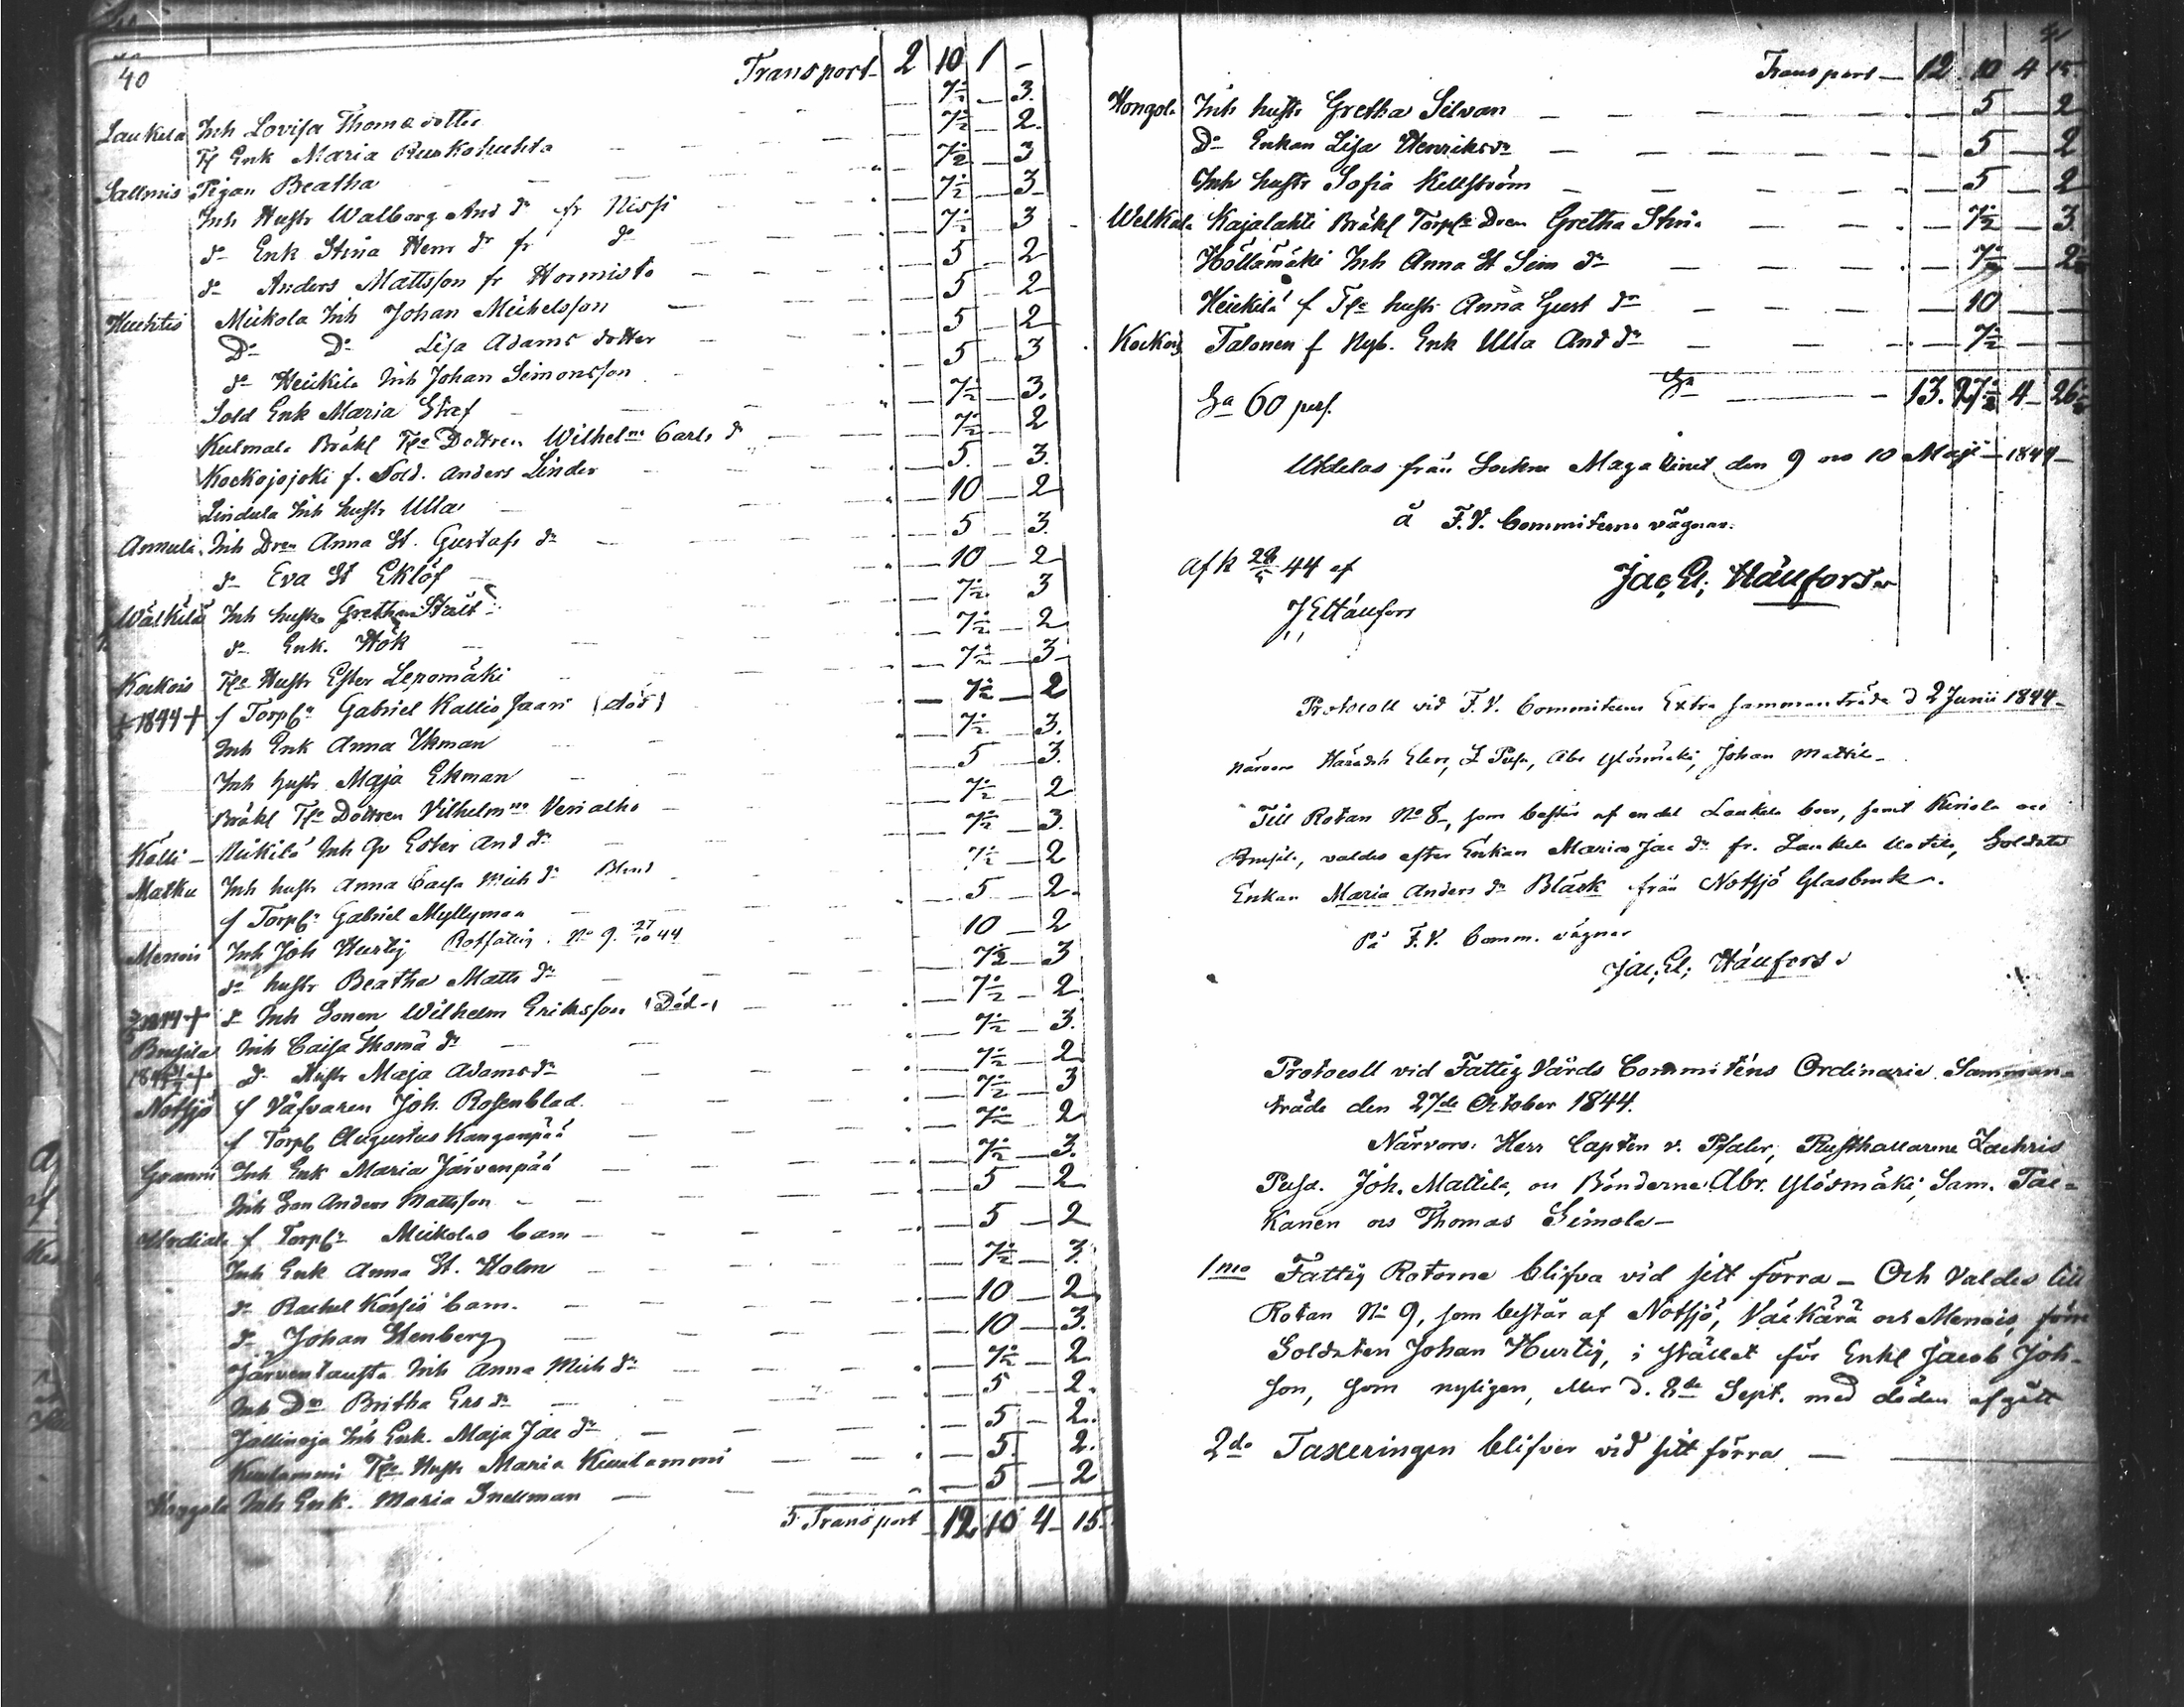 40
Transport 2 10 1 -
Laukela Inh Lovisa Thomasdotter — 7½ — 3.
Enk Maria Ruskohuhta — 7½ — 2.
Salmis Pigan Beatha — 7½ — 3
Inh Hustr Walborg And dr fr Nissi — 7½ — 3
dr Enk Stina Henr dr fr do — 7½ — 3
dr Anders Mattsson fr Hormisto — 5 — 2
Huhtis Mickola Inh Johan Michelsson — 5 — 2
Do Do Lisa Adams dotter — 5 — 2
do Heickilä Inh Johan Simonsson — 5 — 3
Sold Enk Maria Graf — 7½ — 3.
Kulmala Bräkl Dottren Wilhelmna Carls dr — 7½ — 2
Kockojojoki f. Sold. Anders Linder — 5. — 3.
Lindula Inh hustr Ulla — 10 — 2
Annula Inh Dren Anna St. Gustafs dr — 5 — 3.
dr Eva St Eklöf — 10 — 2
Inh hustr Gretha Stält — 7½ 3
dr Enk. Hök — 7½ — 2
Kockois Hustr Ester Lepomäki — 7½ — 3
+1844+ f Torpr Gabriel Kallio Jaan (död) — 7½ — 2
Inh Enk Anna Ekman — 7½ — 3.
Inh hustr Maja Ekman — 5 — 3.
Bräkl Dottren Vilhelmna Verialho — 7½ — 2
Källi Inh Qv Ester And dr — 7½ — 3.
Matku Inh hustr Anna Caisa Mich dr Blind — 7½ — 2
f Torpr Gabriel Myllyman — 5 — 2.
Menois Inh Joh Hurtig Rotfattig No 9. 27/10 44 10 — 2
dr hustr Beatha Matts dr — 7½ — 3
1844+ Inh Sonen Wilhelm Eriksson (Död) — 7½ — 2
Inh Caisa Thoma dr — 7½ — 3.
Hustr Maja Adamsdr — 7½ — 2
Notsjö f Väfvaren Joh. Rosenblad. — 7½ — 3
f Torp Augustus Kanganpää — 7½ — 2
Inh Enk Maria Järvenpää — 7½ — 3.
Inh Son Anders Mattsson — 5 — 2
f Torpr Mickolas Cam — 5 — 2
Inh Enk Anna St. Holm — 7½ — 3.
dr Rachel Cam. — 10 — 2
dr Johan Stenberg — 10 — 3.
Järventausta Inh Anna Mich dr — 7½ — 2
Inh Britha Ers dr — 5 — 2.
Jallinoja Inh Enk. Maja Jac dr — 5 — 2.
Kuulammi Hustr Maria Kuulammi — 5. 2.
Hongola Inh Enk. Maria Snellman — 5 — 2
Transport 12 10 4 15.
Transport — 12 10 4 15
Hongola Inh hustr Gretha Silvan — 5 — 2
Do Enkan Lisa Henriksdr — 5 — 2
Inh hustr Sofia Kellström — 5 — 2
Kajalahti Bräkl Dren Gretha Stin. — 7½ — 3.
Höllämäki Inh Anna St Sim dr — 7½ — 2
Heickilä f hustr Anna Gust dr — 10 — —
Kockois Talonen f Nyb. Enk Ulla And dr — 7½ — —
Sa 60 pers. Sa — 13. 27½ 4 — 26
Utdelas från Sockne Magazinet den 9 oc 10 Maji 1844
å F.V. Commiteens vägnar.
Afk 28/5 44 af Jac. El. Häufors
J E Häufors
Protocoll vid F.V. Commiteens Extra sammanträde d 2 Junii 1844
närvoro Abr Ylösmäki, Johan Mattil
Till Rotan No 8, som består af en del Laukela boer, samt
valdes efter Enkan Maria Jac dr fr. Laukela Soldate
Enkan Maria Anders dr Bläck från Notsjö Glasbruk.
På F.V. Comm. vägnar
Jac. El. Häufors
Protocoll vid Fattig Vårds Commiténs Ordinarie Samman=
träde den 27de October 1844.
Närvoro: Herr Capten v. Pfaler, Rusthallarne Zachris
Pusa. Joh. Mattila, oc Bönderne Abr. Ylösmäki, Sam. Tac=
kanen oc Thomas Simola
1mo Fattig Rotorne blifva vid sitt förra — Och Valdes till
Rotan No 9, som består af Notsjö, Väckärä och Menois, förre
Soldaten Johan Hurtig, i stället för Enkl Jacob Joh-
son, som nyligen, eller d. 8de Sept. med döden afgått
2do Taxeringen blifver vid sitt förra —